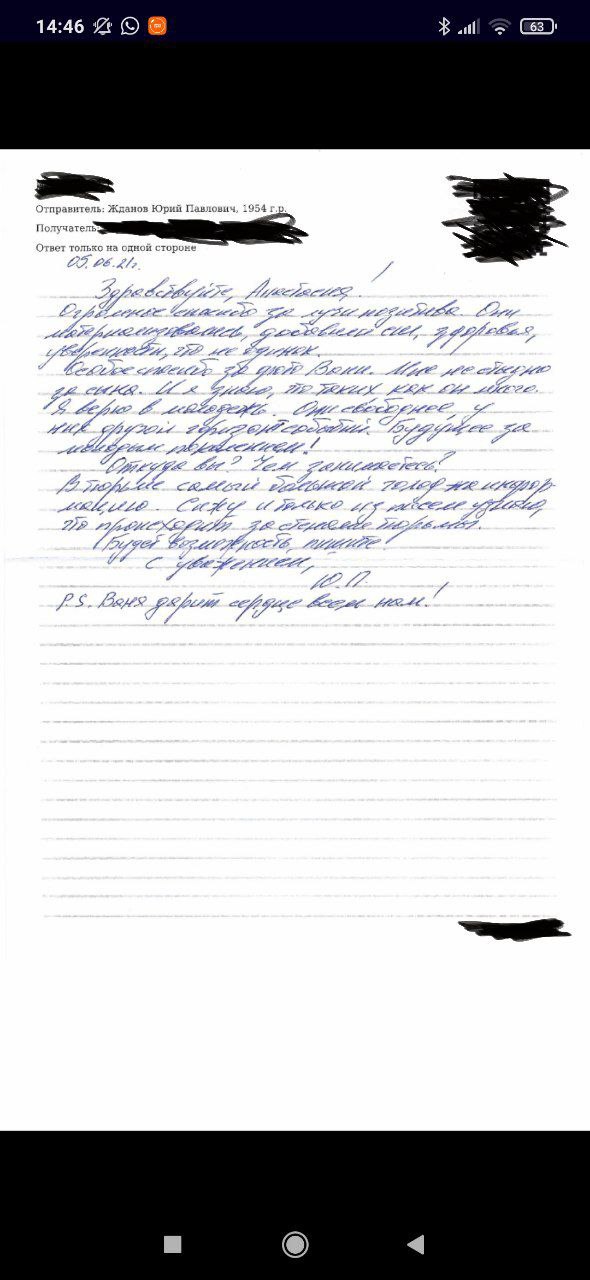 14:46
63
Отправитель: Жданов Юрий Павлович, 1954 г.р.
Получатель:
Ответ только на одной стороне
05.06.21г.
Здравствуйте, Анастасия!
Огромное спасибо за лучи позитива. Они
материализовались, добавили сил, здоровья,
уверенности, что не одинок.
Особое спасибо за фото Вани. Мне не стыдно
за сына. И я знаю, что таких, как он много.
Я верю в молодежь. Они свободнее, у
них другой горизонт событий. Будущее за
молодым поколением!
Откуда вы? Чем занимаетесь?
В тюрьме самый большой голод на инфор-
мацию. Сижу и только из писем узнаю,
что происходит за стенами тюрьмы.
Будет возможность, пишите.
С уважением,
Ю.П.
P.S. Ваня дарит сердце всем нам!